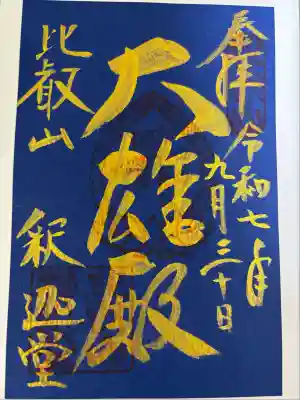 奉拝 令和七年
九月三十日
大雄殿
比叡山 釈迦堂